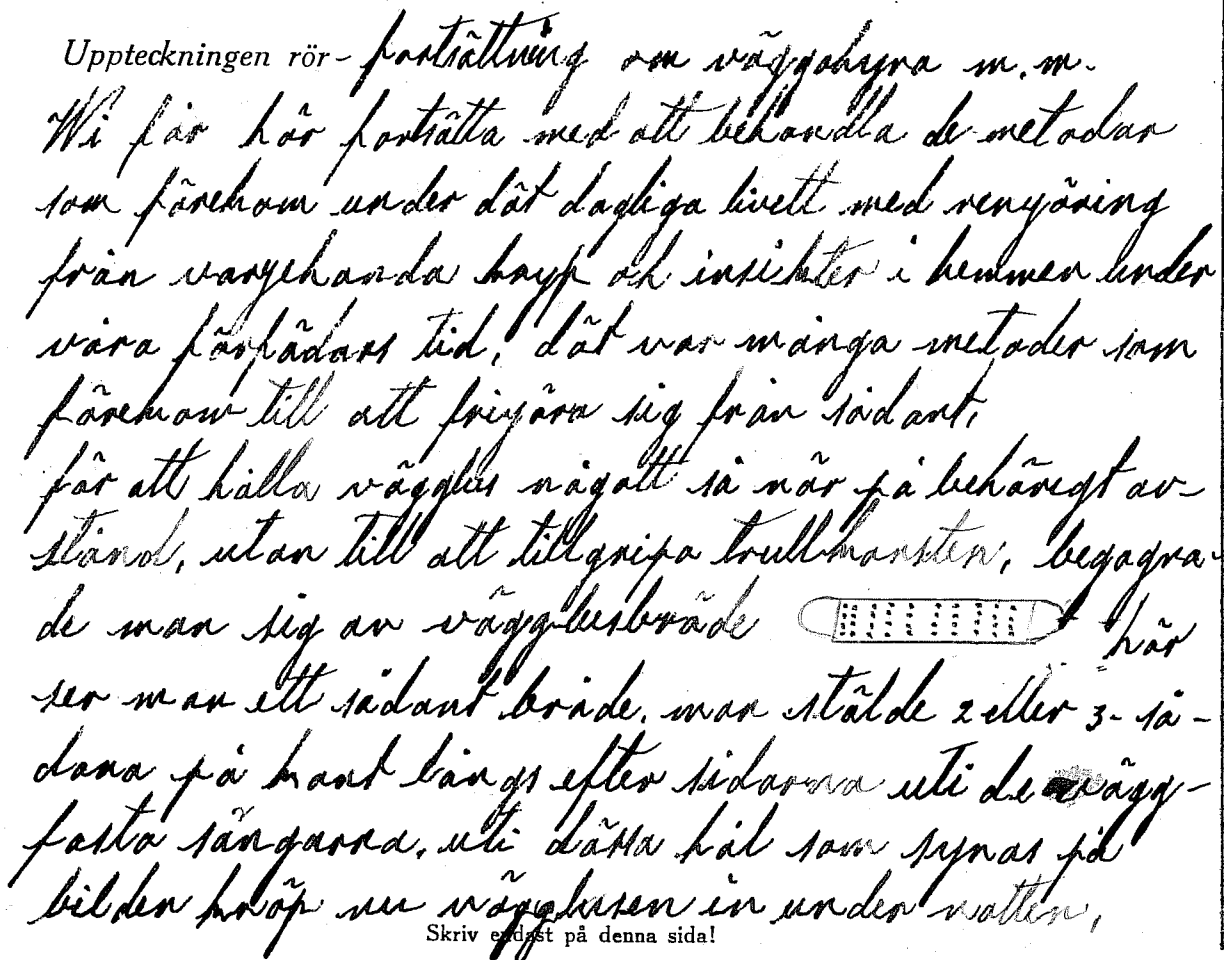 Uppteckningen rör - fortsättning om väggohyra m.m.
Wi får här fortsätta med att behandla de metodar
som förekom under dät dagliga livett med rengöring
från vargehanda kryp och insikter i hemmen under
våra förfädars tid, dät var många metoder som
förekom till att frigöra sig från sådant,
för att hålla vägglus någott så när på behörigt av-
stånd, utan till att tillgripa trullkonsten, begagna-
de man sig av vägglusbräde
här
ser man ett sådant bräde. man stälde 2 eller 3- så-
dana på kant längs efter sidorna uti de vägg-
fasta sängarna, uti dässa hål som synas på
bilden kröp nu vägglusen in under natten,
Skriv endast på denna sida!